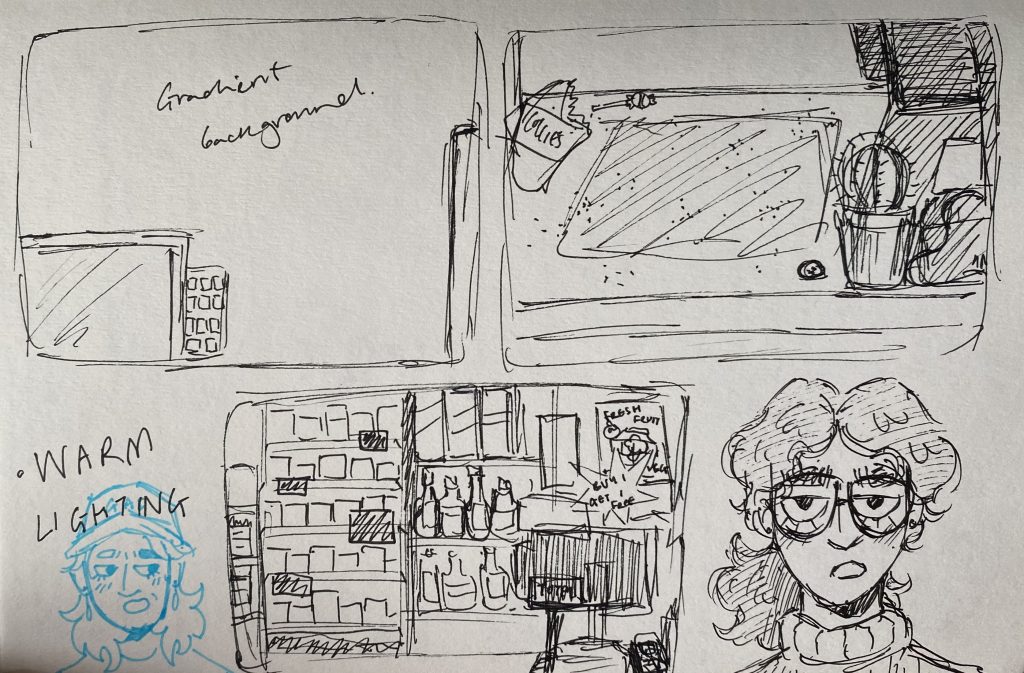 Gradient
background.
• WARM
LIGHTING
FRESH
FRUIT
BUY 1
GET 1
FREE